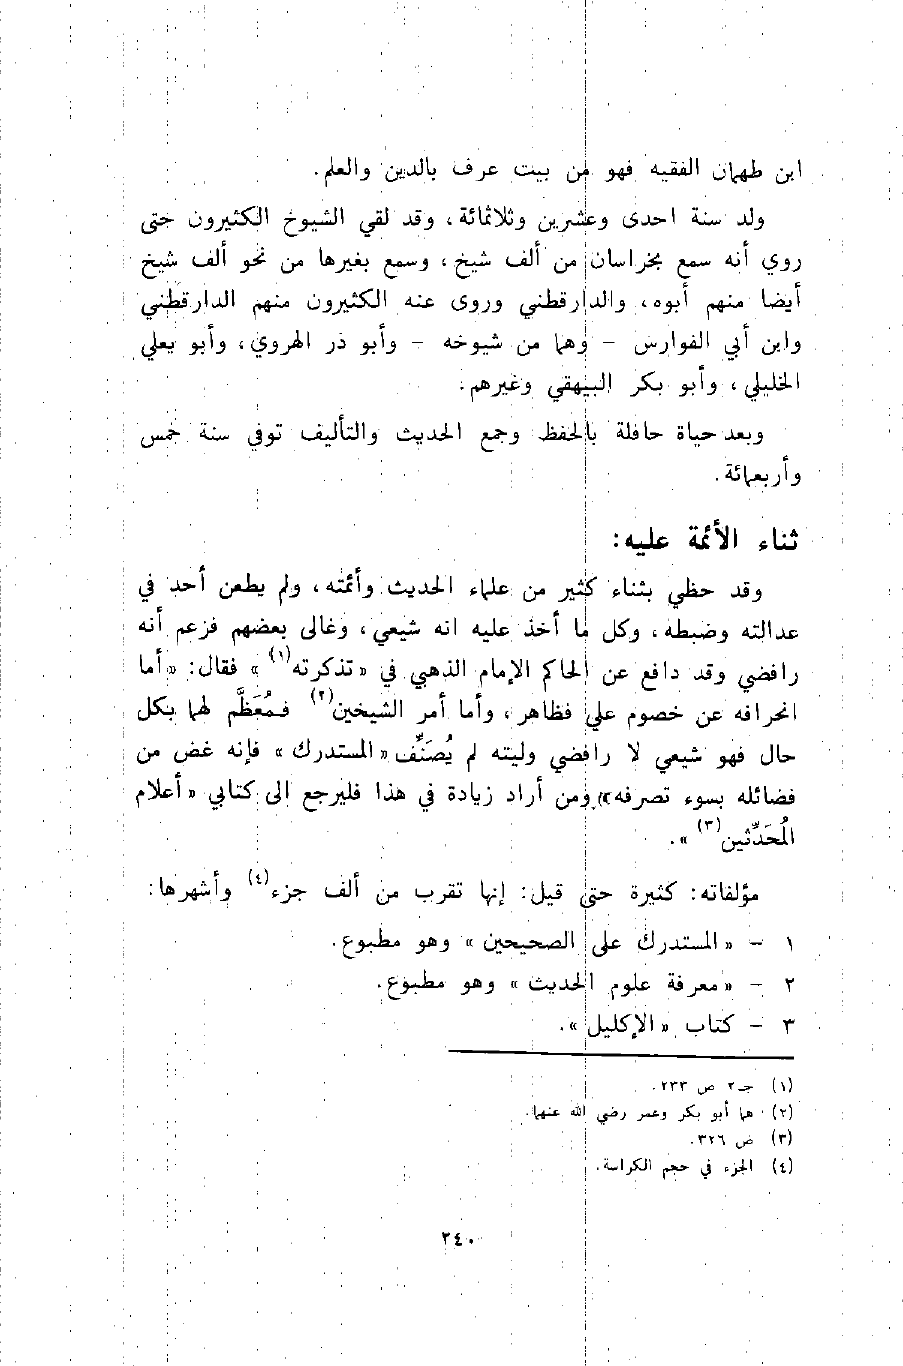 ابن طهمان الفقيه فهو من بيت عرف بالدين والعلم.
ولد سنة احدى وعشرين وثلاثمائة، وقد لقي الشيوخ الكثيرون حتى
روي أنه سمع بخراسان من ألف شيخ، وسمع بغيرها من نحو ألف شيخ
أيضا منهم أبوه، والدارقطني وروى عنه الكثيرون منهم الدارقطني
وابن أبي الفوارس - وهما من شيوخه - وأبو ذر الهروي، وأبو يعلي
الخليلي، وأبو بكر البيهقي وغيرهم.
وبعد حياة حافلة بالحفظ وجمع الحديث والتأليف توفي سنة خمس
وأربعمائة.
ثناء الأئمة عليه:
وقد حظي بثناء كثير من علماء الحديث وأئمته، ولم يطعن أحد في
عدالته وضبطه، وكل ما أخذ عليه انه شيعي، وغالى بعضهم فزعم أنه
رافضي وقد دافع عن الحاكم الإمام الذهبي في «تذكرته(١)» فقال: «أما
انحرافه عن خصوم علي فظاهر، وأما أمر الشيخين(٢) فمُعَظَّم لهما بكل
حال فهو شيعي لا رافضي وليته لم يُصَنِّف «المستدرك» فإنه غض من
فضائله بسوء تصرفه» ومن أراد زيادة في هذا فليرجع الى كتابي «أعلام
المُحَدِّثين(٣)».
مؤلفاته: كثيرة حتى قيل: إنها تقرب من ألف جزء(٤) وأشهرها:
١ - «المستدرك على الصحيحين» وهو مطبوع.
٢ - «معرفة علوم الحديث» وهو مطبوع.
٣ - كتاب «الإكليل».
(١) جـ٢ ص ٢٣٣.
(٢) هما أبو بكر وعمر رضي الله عنهما.
(٣) ص ٣٢٦.
(٤) الجزء في حجم الكراسة.
٢٤٠